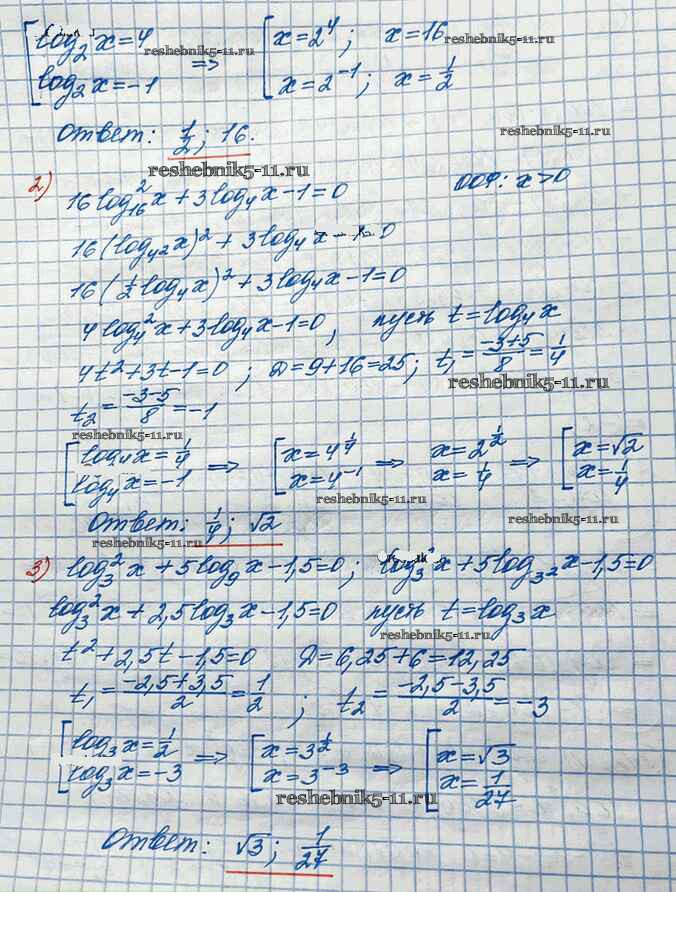 [log₂x=4 ⇒ [x=2⁴; x=16
[log₂x=-1 [x=2⁻¹; x=1/2
reshebnik5-11.ru reshebnik5-11.ru
reshebnik5-11.ru
Ответ: 1/2; 16. reshebnik5-11.ru
reshebnik5-11.ru
2) 16log²₁₆x+3log₄x-1=0 ООФ: x>0
16(log₄²x)²+3log₄x 0
16(1/2log₄x)²+3log₄x-1=0
4log₄²x+3log₄x-1=0, пусть t=log₄x
4t²+3t-1=0; D=9+16=25; t₁=(-3+5)/8=1/4
t₂=(-3-5)/8=-1 reshebnik5-11.ru
reshebnik5-11.ru
[log₄x=1/4 ⇒ [x=4^(1/4) ⇒ x=2^(1/2) ⇒ [x=√2
[log₄x=-1 [x=4⁻¹ x=1/4 [x=1/4
reshebnik5-11.ru
Ответ: 1/4; √2 reshebnik5-11.ru
reshebnik5-11.ru
3) log₃²x+5log₉x-1,5=0; log₃²x+5log₃²x-1,5=0
log₃²x+2,5log₃x-1,5=0 пусть t=log₃x
reshebnik5-11.ru
t²+2,5t-1,5=0 D=6,25+6=12,25
t₁=(-2,5+3,5)/2=1/2; t₂=(-2,5-3,5)/2=-3
[log₃x=1/2 ⇒ [x=3^(1/2) ⇒ [x=√3
[log₃x=-3 [x=3⁻³ [x=1/27
reshebnik5-11.ru
Ответ: √3; 1/27